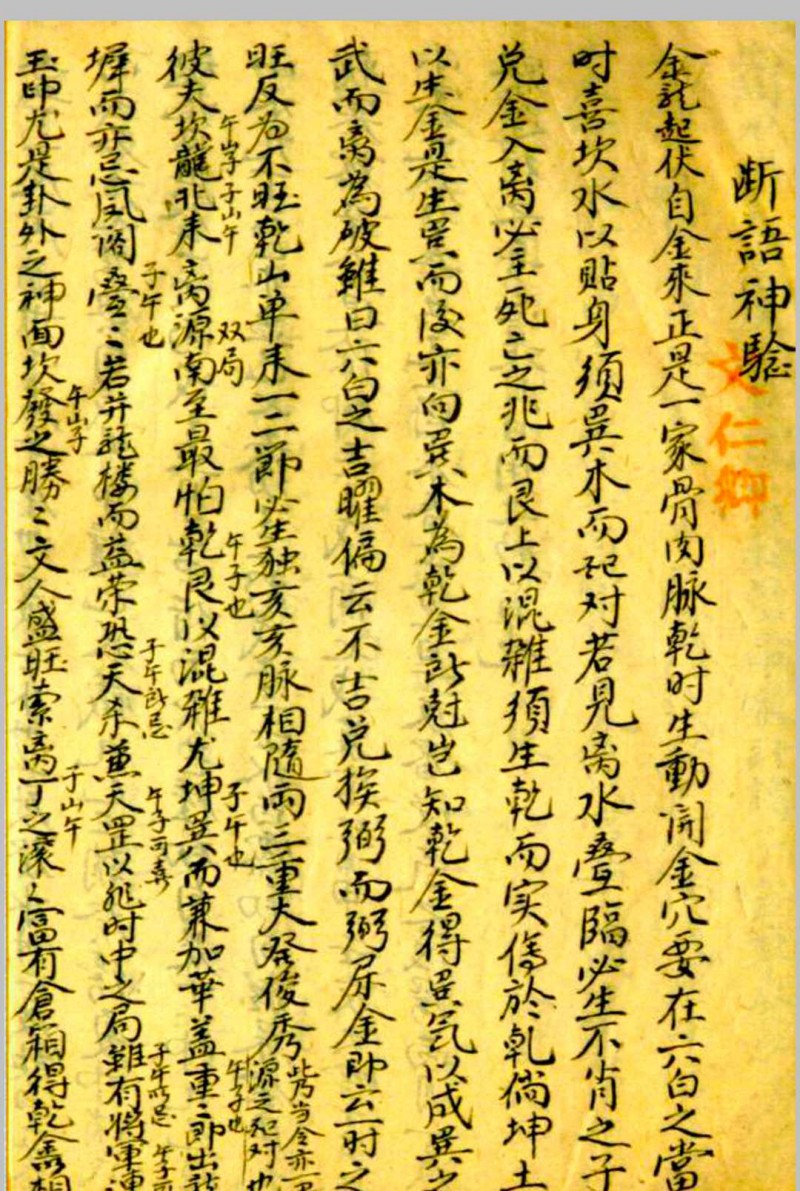 断語神驗
文仁卿
金龍起伏自金來正是一家骨肉脉乾时生動開金穴要在六白之當
时喜坎水以貼身須巽木而配对若見离水叠臨必生不肖之子
兑金入离必主死亡之兆而艮上以混雜須生乾而实傷於乾倘坤土
以生金是生巽而後亦向巽木為乾金所尅岂知乾金得巽氣以成巽之
武而离為破雖曰六白之吉曜偏云不吉兑挨弼而弼原金即云一时之
旺反为不旺乾山单来一二節必生独亥亥脉相隨両三重大發俊秀
此乃当令亦一
源之如对也
彼夫坎龍兆来离源南至最怕乾艮以混雜尤坤巽而兼加華盖重二即出
午山子子山午
双局
午子也
子午也
午子也
墀而亦忌凤阁叠二若并龍楼而益荣恐天杀兼天罡以兆时中之局雖有將軍
子午也
子午所忌
午子可喜
子午所忌
玉印尤是卦外之神面坎發之勝二文人盛旺索离丁之滚々富有倉箱得乾
午山子
子山午